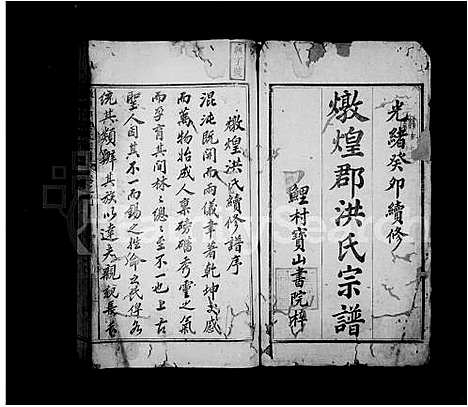 光緒癸卯續修
燉煌郡洪氏宗譜
鯉村寶山書院梓
燉煌洪氏續修譜序
混沌既開而兩儀肇著乾坤交感
而萬物始成人稟磅礴秀靈之氣
而孕育其間林々總々至不一也上古
聖人因其不一而錫之姓命之氏俾各
統其類辨其族以達夫親親長長